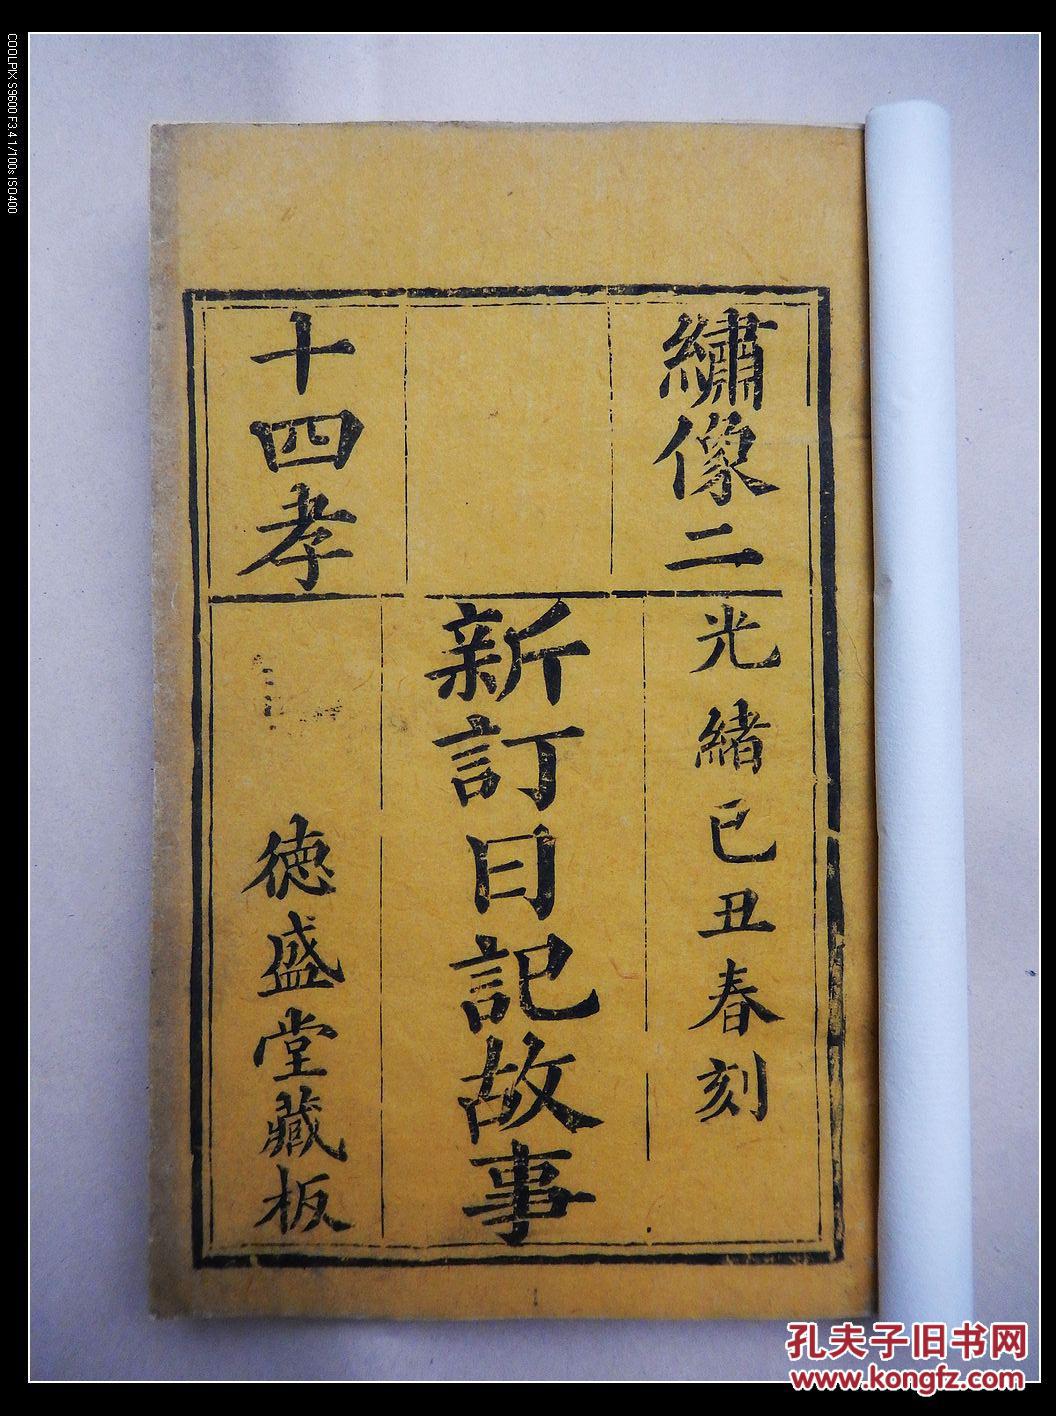 繡像二
十四孝
光緒己丑春刻
新訂日記故事
德盛堂藏板
孔夫子旧书网
www.kongfz.com
COOLPIX S9600 F3.4 1/100s ISO400